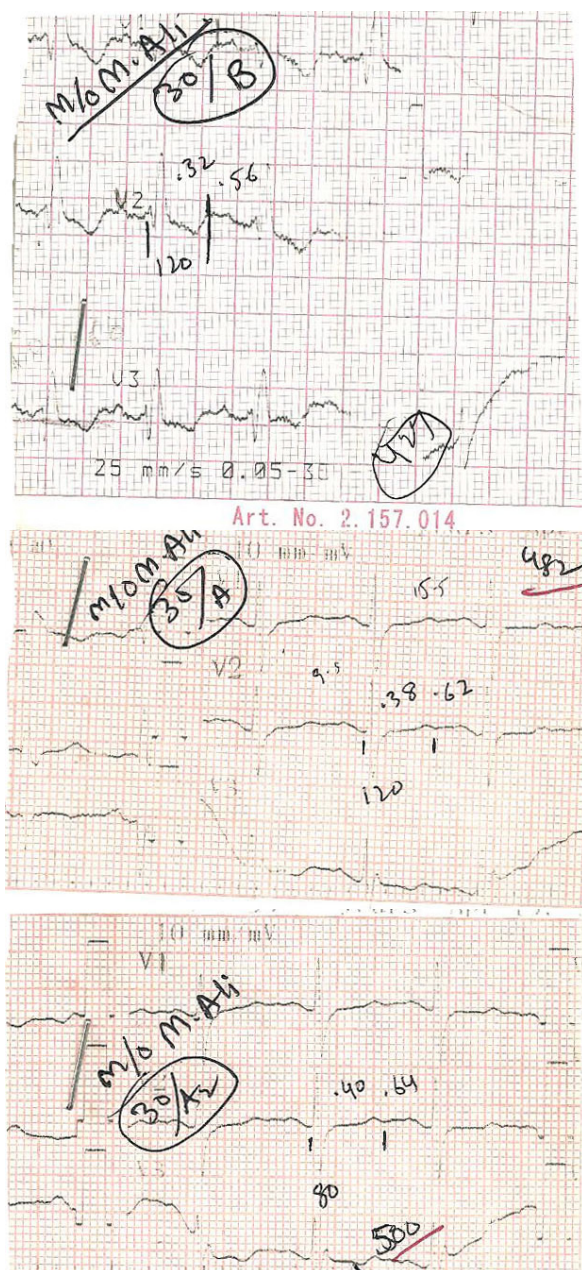 M/O M. Ali
30/B
.32 .56
V2
120
V3
427
25 mm/s 0.05-3
Art. No. 2.157.014
10 mm/mV
M/O M. Ali
30/A
15.5
482
V2
9.5
.38 .62
120
V3
10 mm/mV
V1
M/O M. Ali
30/A2
.40 .64
V3
80
500